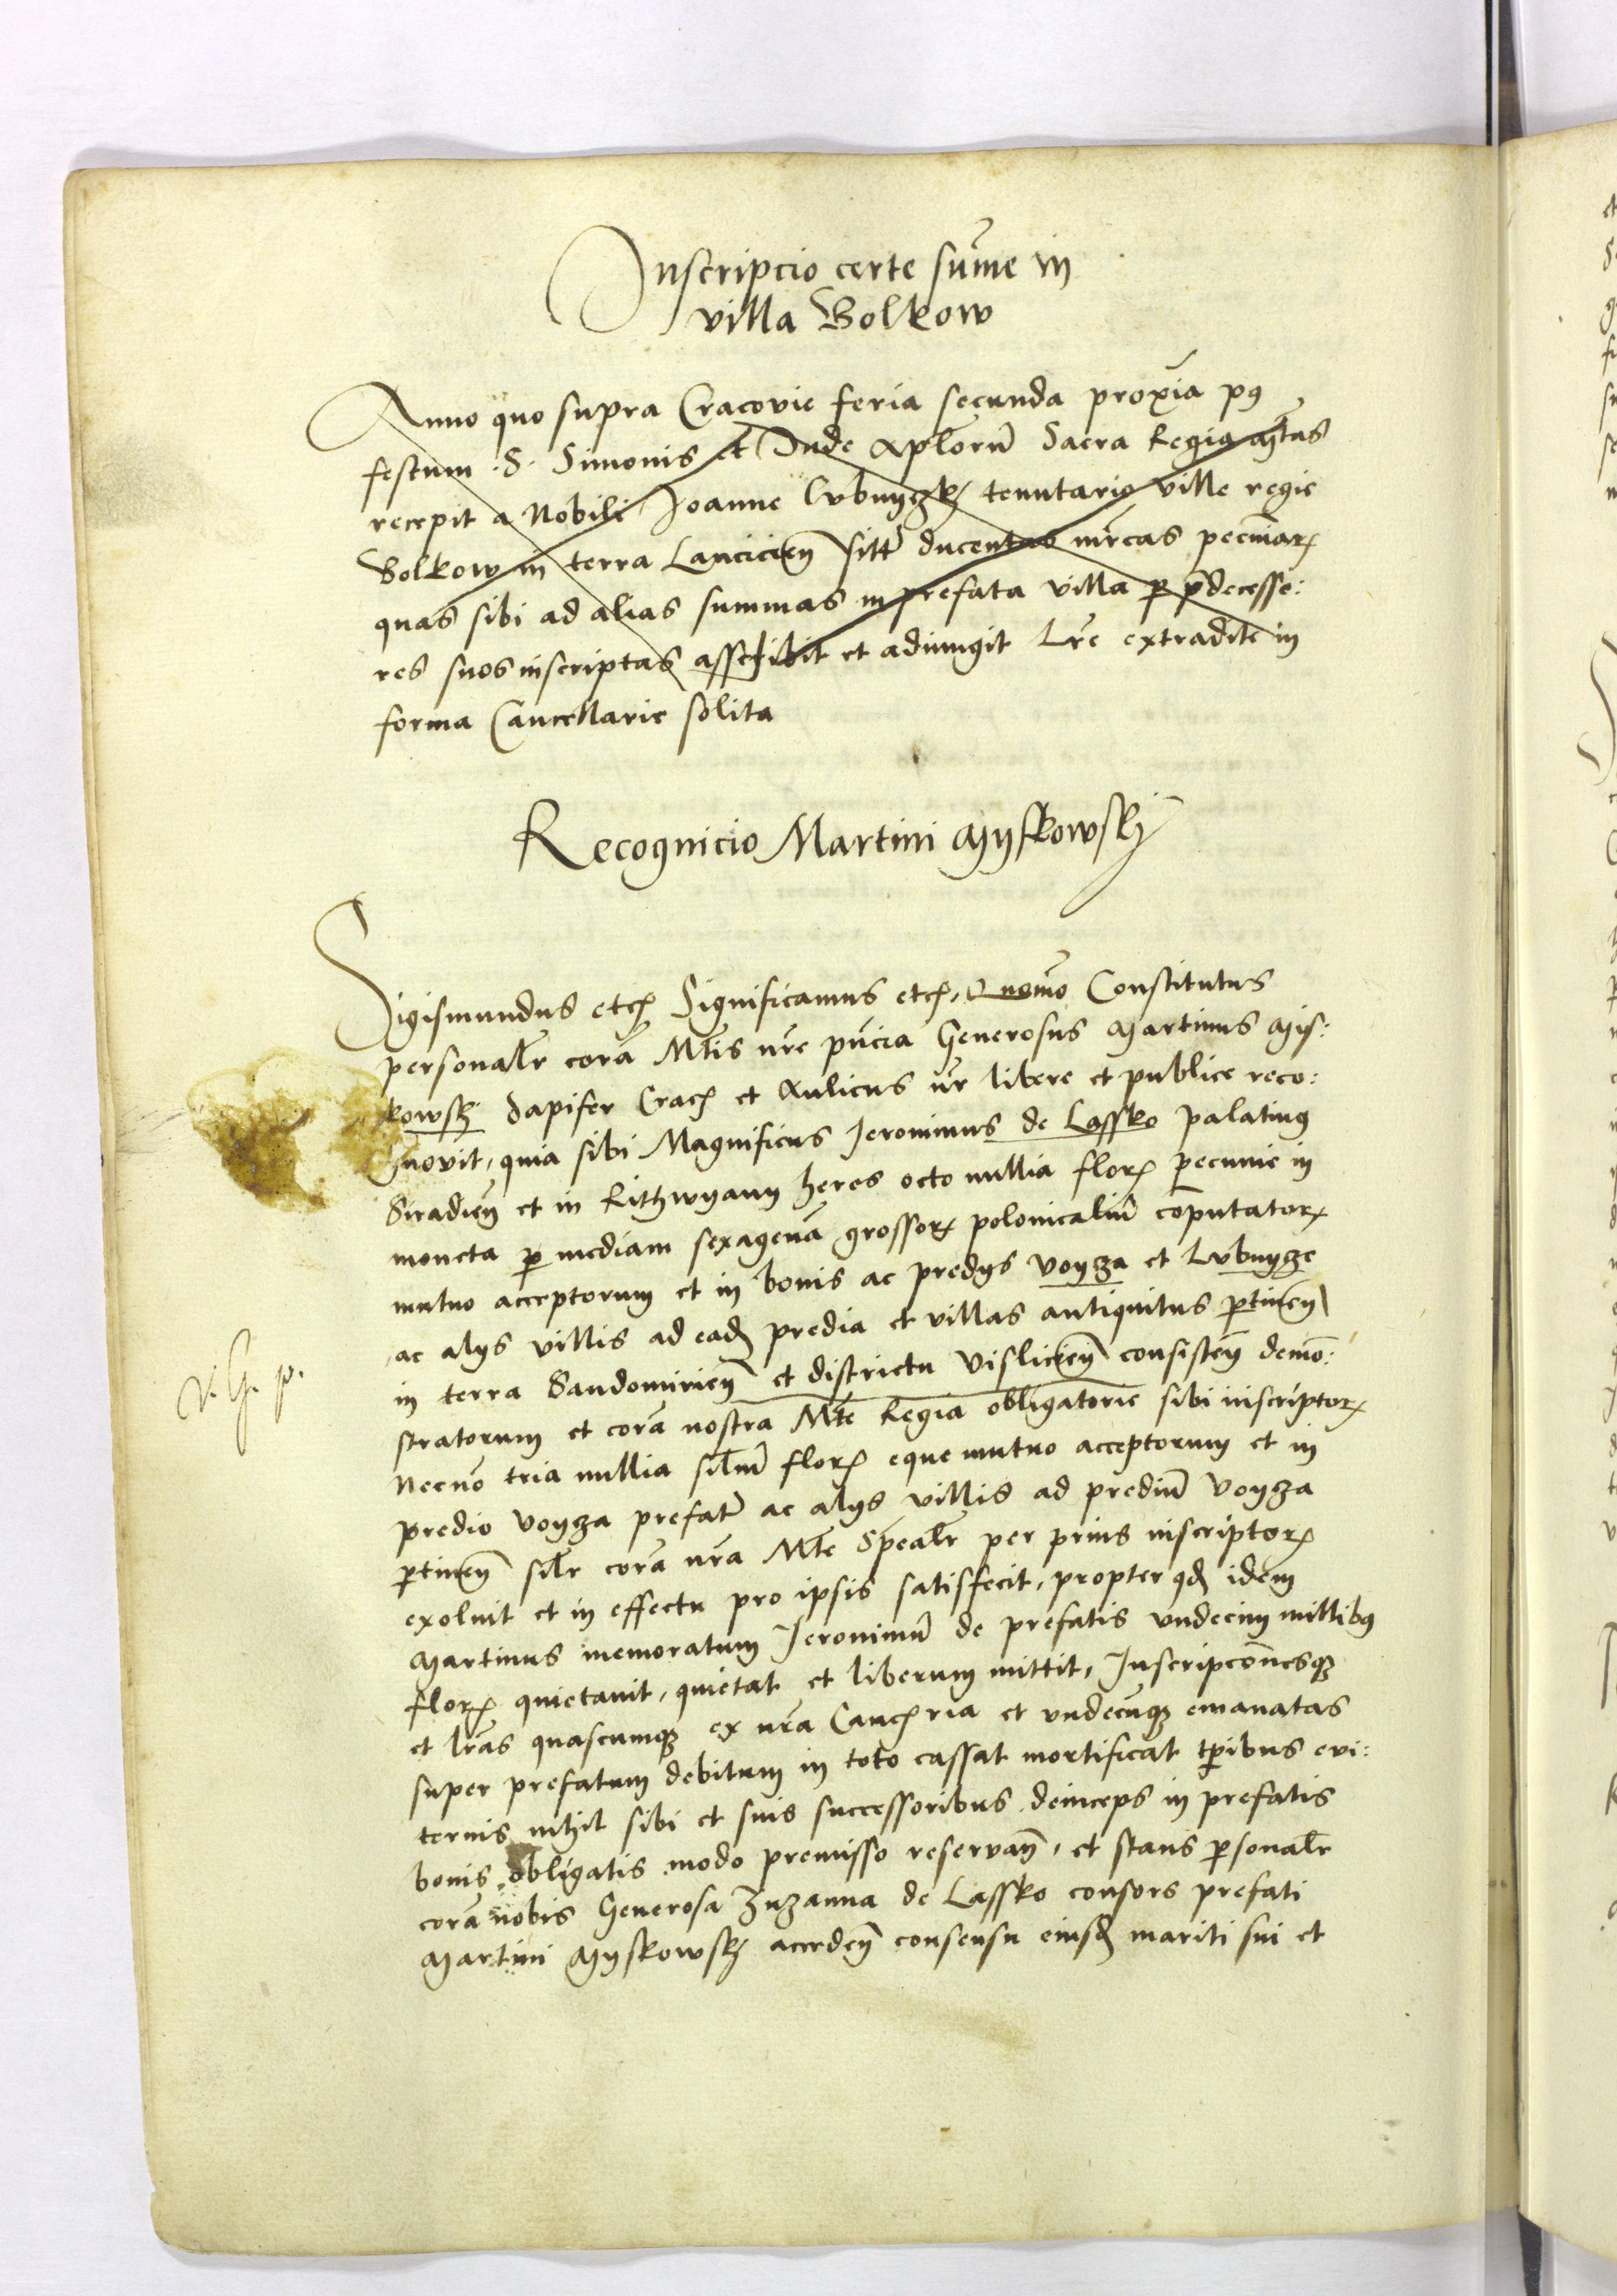 Inscripcio certe sum̄e in
villa Bolkow
Anno quo supra Cracovie feria secunda proxīa pꝰ
festum .S. Simonis et Jude Apl̄orum̄ Sacra Regia M̄tas
recepit a Nobili Joanne Lvbnyczkj tenutario ville regie
Bolkow in terra Lancicien̄ sitt̄ ducentas mr̄cas pecuniaꝝ
quas sibi ad alias summas in prefata villa ꝑ p̄decesso:
res suos inscriptas asscribit et adiungit Lr̄e extradite in
forma Cancellarie solita
Recognicio Martini Myskowskj
Sigismundus etcꝫ Significamus etcꝫ, Quom̄o Constitutus
personalr̄ corā Mt̄is nr̄e pn̄cia Generosus Martinus Mis:
kowskj dapifer Cracꝫ et Aulicus nr̄ libere et publice reco:
gnovit, quia sibi Magnificus Jeronimus de Lassko palatinꝰ
Siradien̄ et in Rithwyany heres octo millia floꝝ pecunie in
moneta ꝑ mediam sexagenā grossoꝝ polonicaliū cōputatoꝝ
mutuo acceptorum et in bonis ac predijs voycza et Lvbnycze
ac alijs villis ad eadꝫ predia et villas antiquitus ꝑtinen̄
in terra Sandomirien̄ et districtu Vislicien̄ consisten̄ demō:
stratorum et corā nostra Mt̄e Regia obligatorie sibi inscriptoꝝ
Necnō tria millia sil̄iū floꝝ eque mutuo acceptorum et in
predio voycza prefat̄ ac alijs villis ad prediū voycza
ꝑtinen̄ silr̄ corā nr̄a Mt̄e Spēalr̄ per prius inscriptoꝝ
exoluit et in effectu pro ipsis satisfecit, propter qd̄ idem
Martinus memoratum Jeronimū de prefatis vndecim millibꝰ
floꝝ quietauit, quietat et liberum mittit, Inscripcōnesqꝫ
et lr̄as quascumqꝫ ex nr̄a Cancꝫria et vndecūqꝫ emanatas
super prefatum debitum in toto cassat mortificat tꝑibus evi:
ternis nihil sibi et suis successoribus deinceps in prefatis
bonis obligatis modo premisso reservan̄, et stans ꝑsonalr̄
corā nobis Generosa Zuzanna de Lassko consors prefati
Martini Myskowskj acceden̄ consensu eiusdꝫ mariti sui et